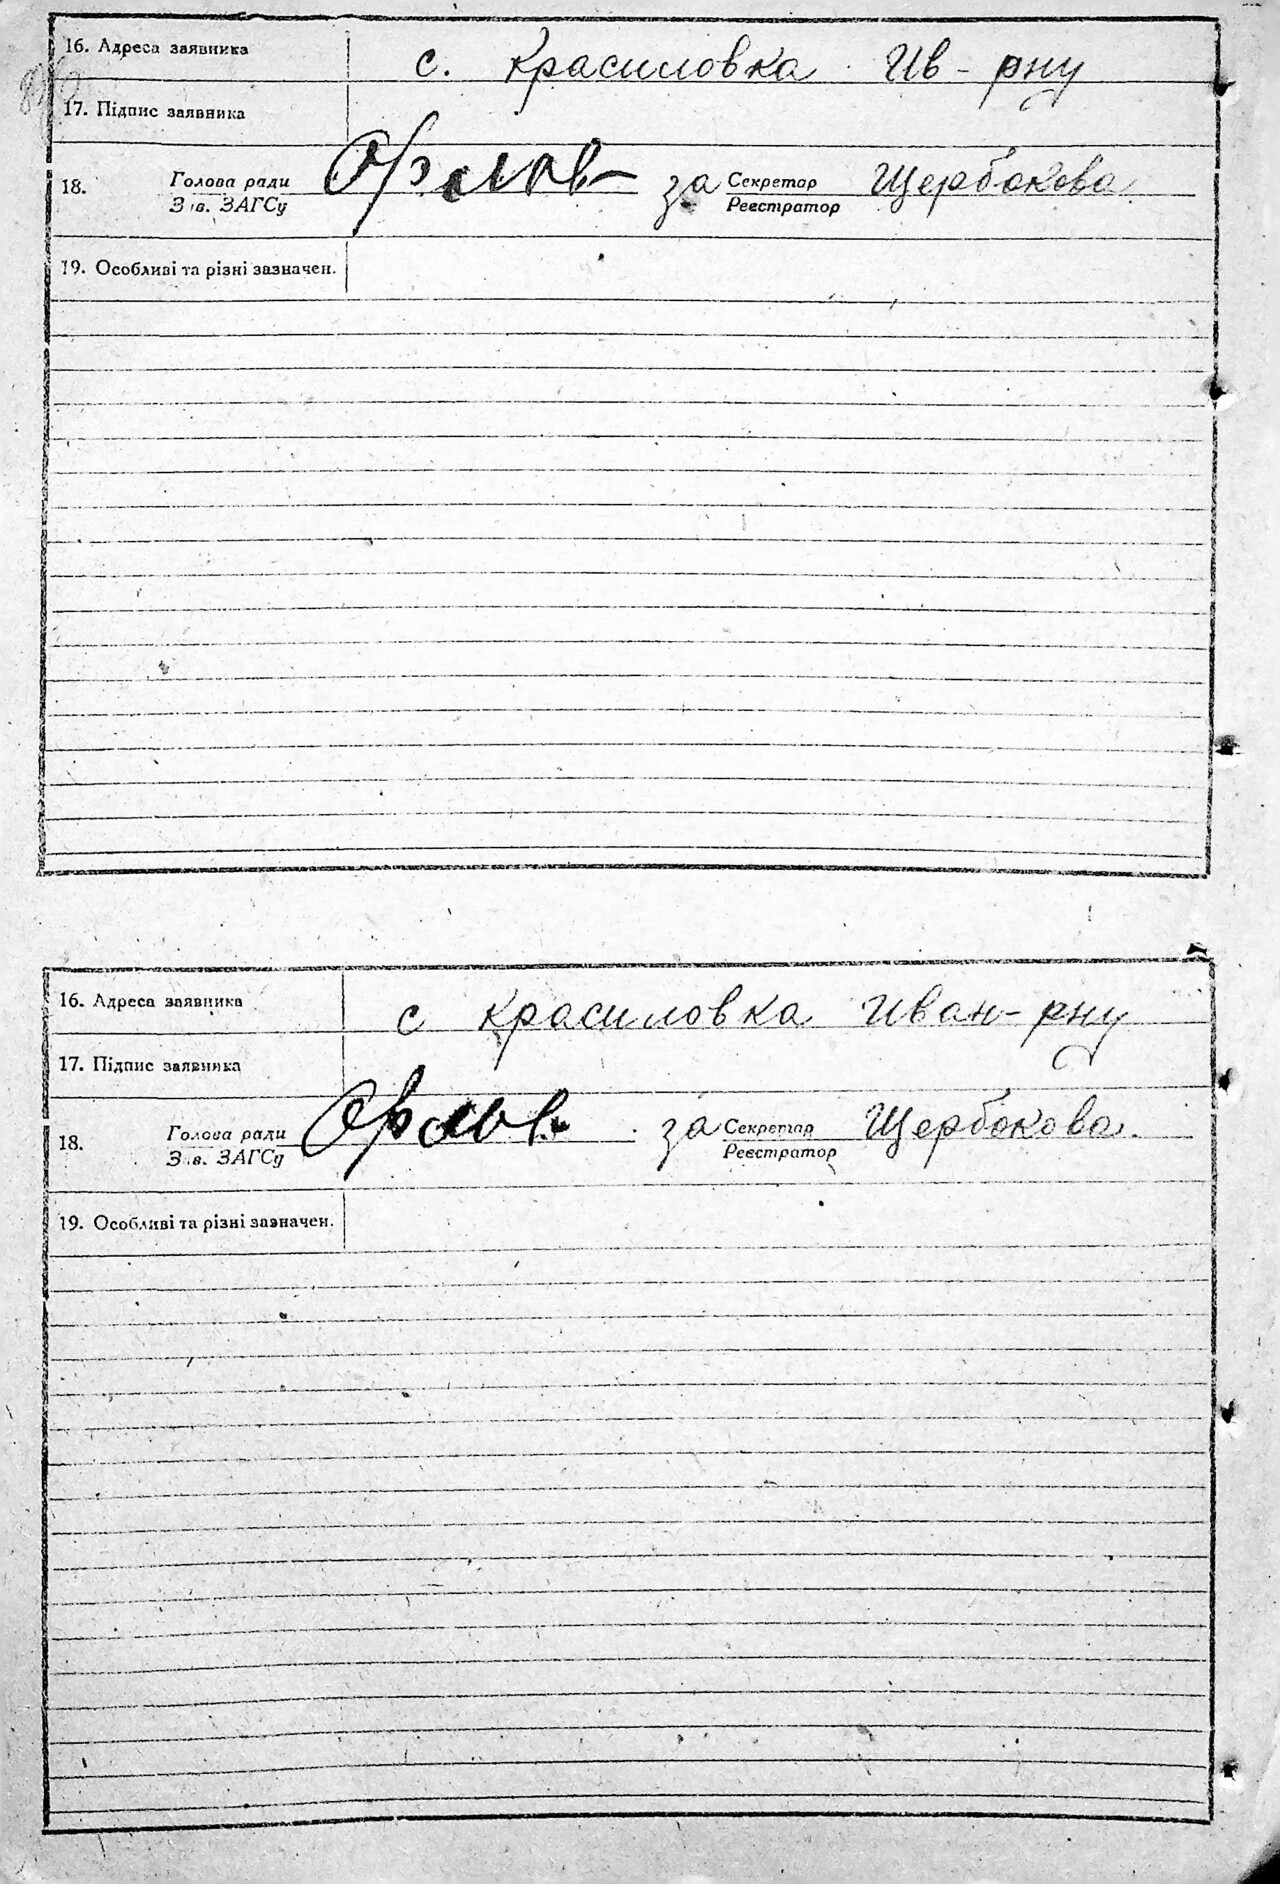 16. Адреса заявника с. Красиловка Ив-рну
17. Підпис заявника
18. Голова ради Орлов за Секретар Щербакова
Зав. ЗАГСу Реєстратор
19. Особливі та різні зазначен.
16. Адреса заявника с Красиловка Иван-рну
17. Підпис заявника
18. Голова ради Орлов за Секретар Щербакова.
Зав. ЗАГСу Реєстратор
19. Особливі та різні зазначен.